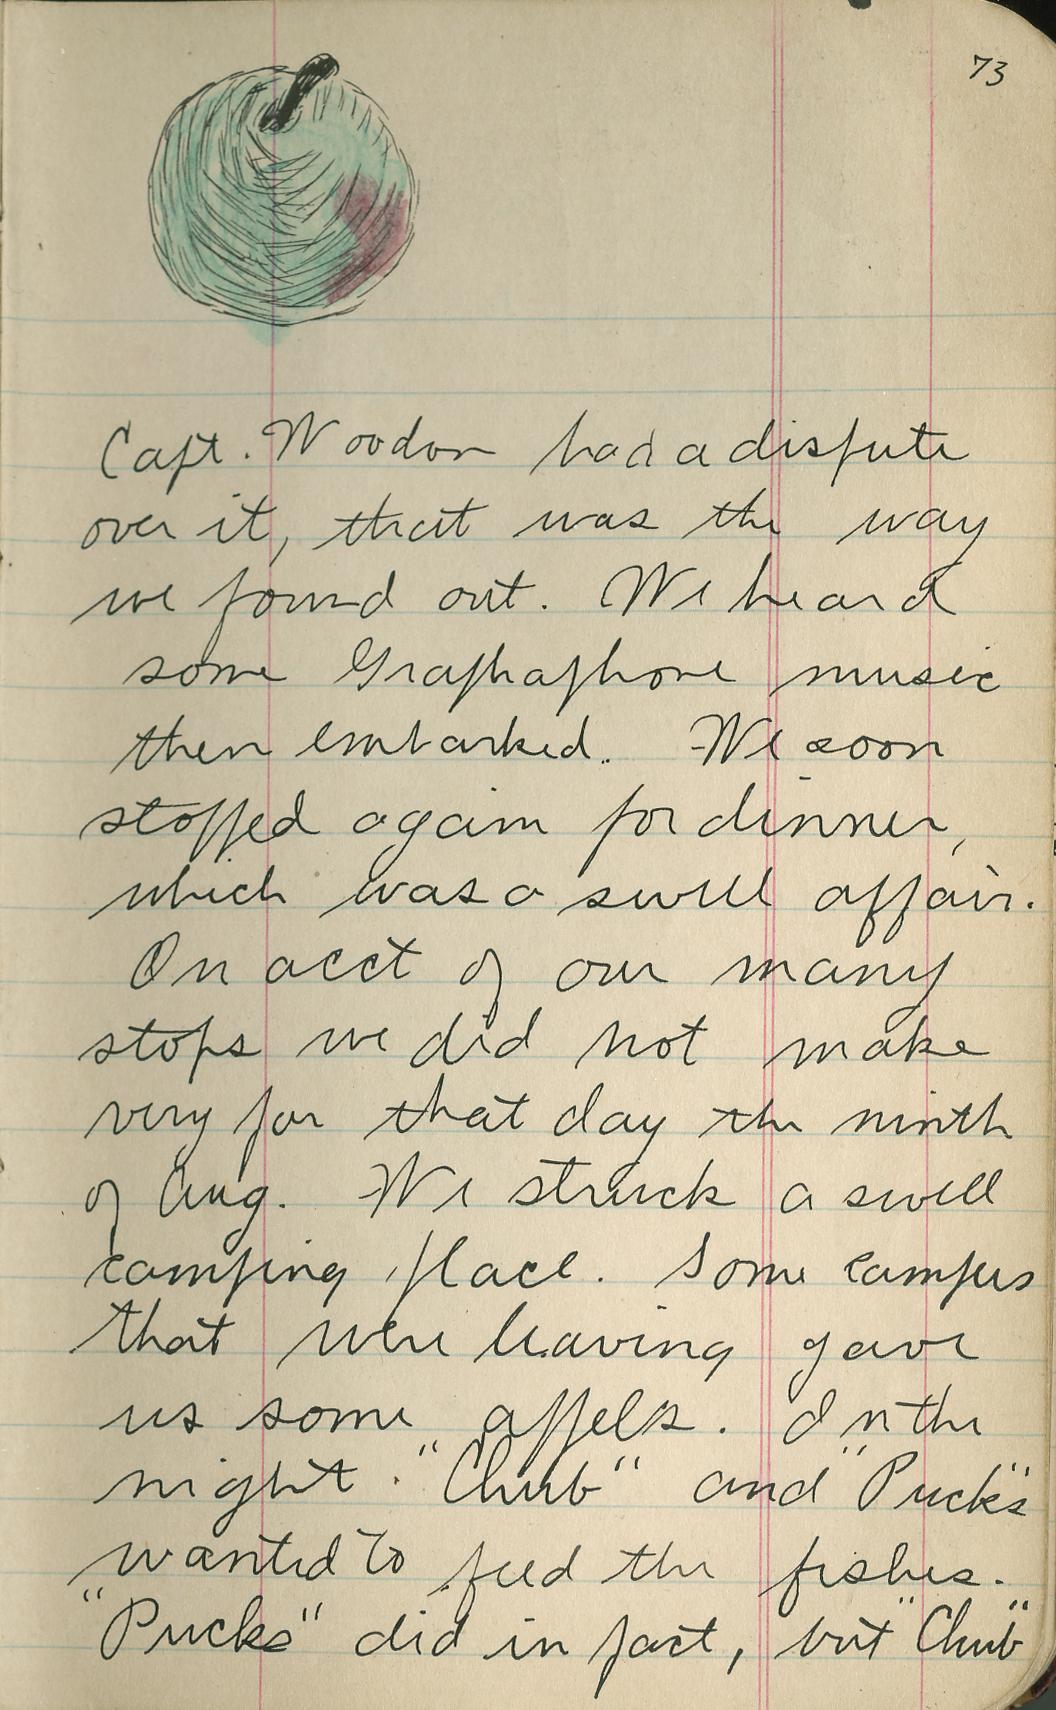 73
Capt. Woodon had a dispute
over it, that was the way
we found out. We heard
some Graphaphone music
then embarked. We soon
stopped again for dinner,
which was a swell affair.
On acct of our many
stops we did not make
very far that day the ninth
of Aug. We struck a swell
camping place. Some campers
that were leaving gave
us some appels. In the
night "Chub" and "Pucks"
wanted to feed the fishes.
"Pucks" did in fact, but "Chub"